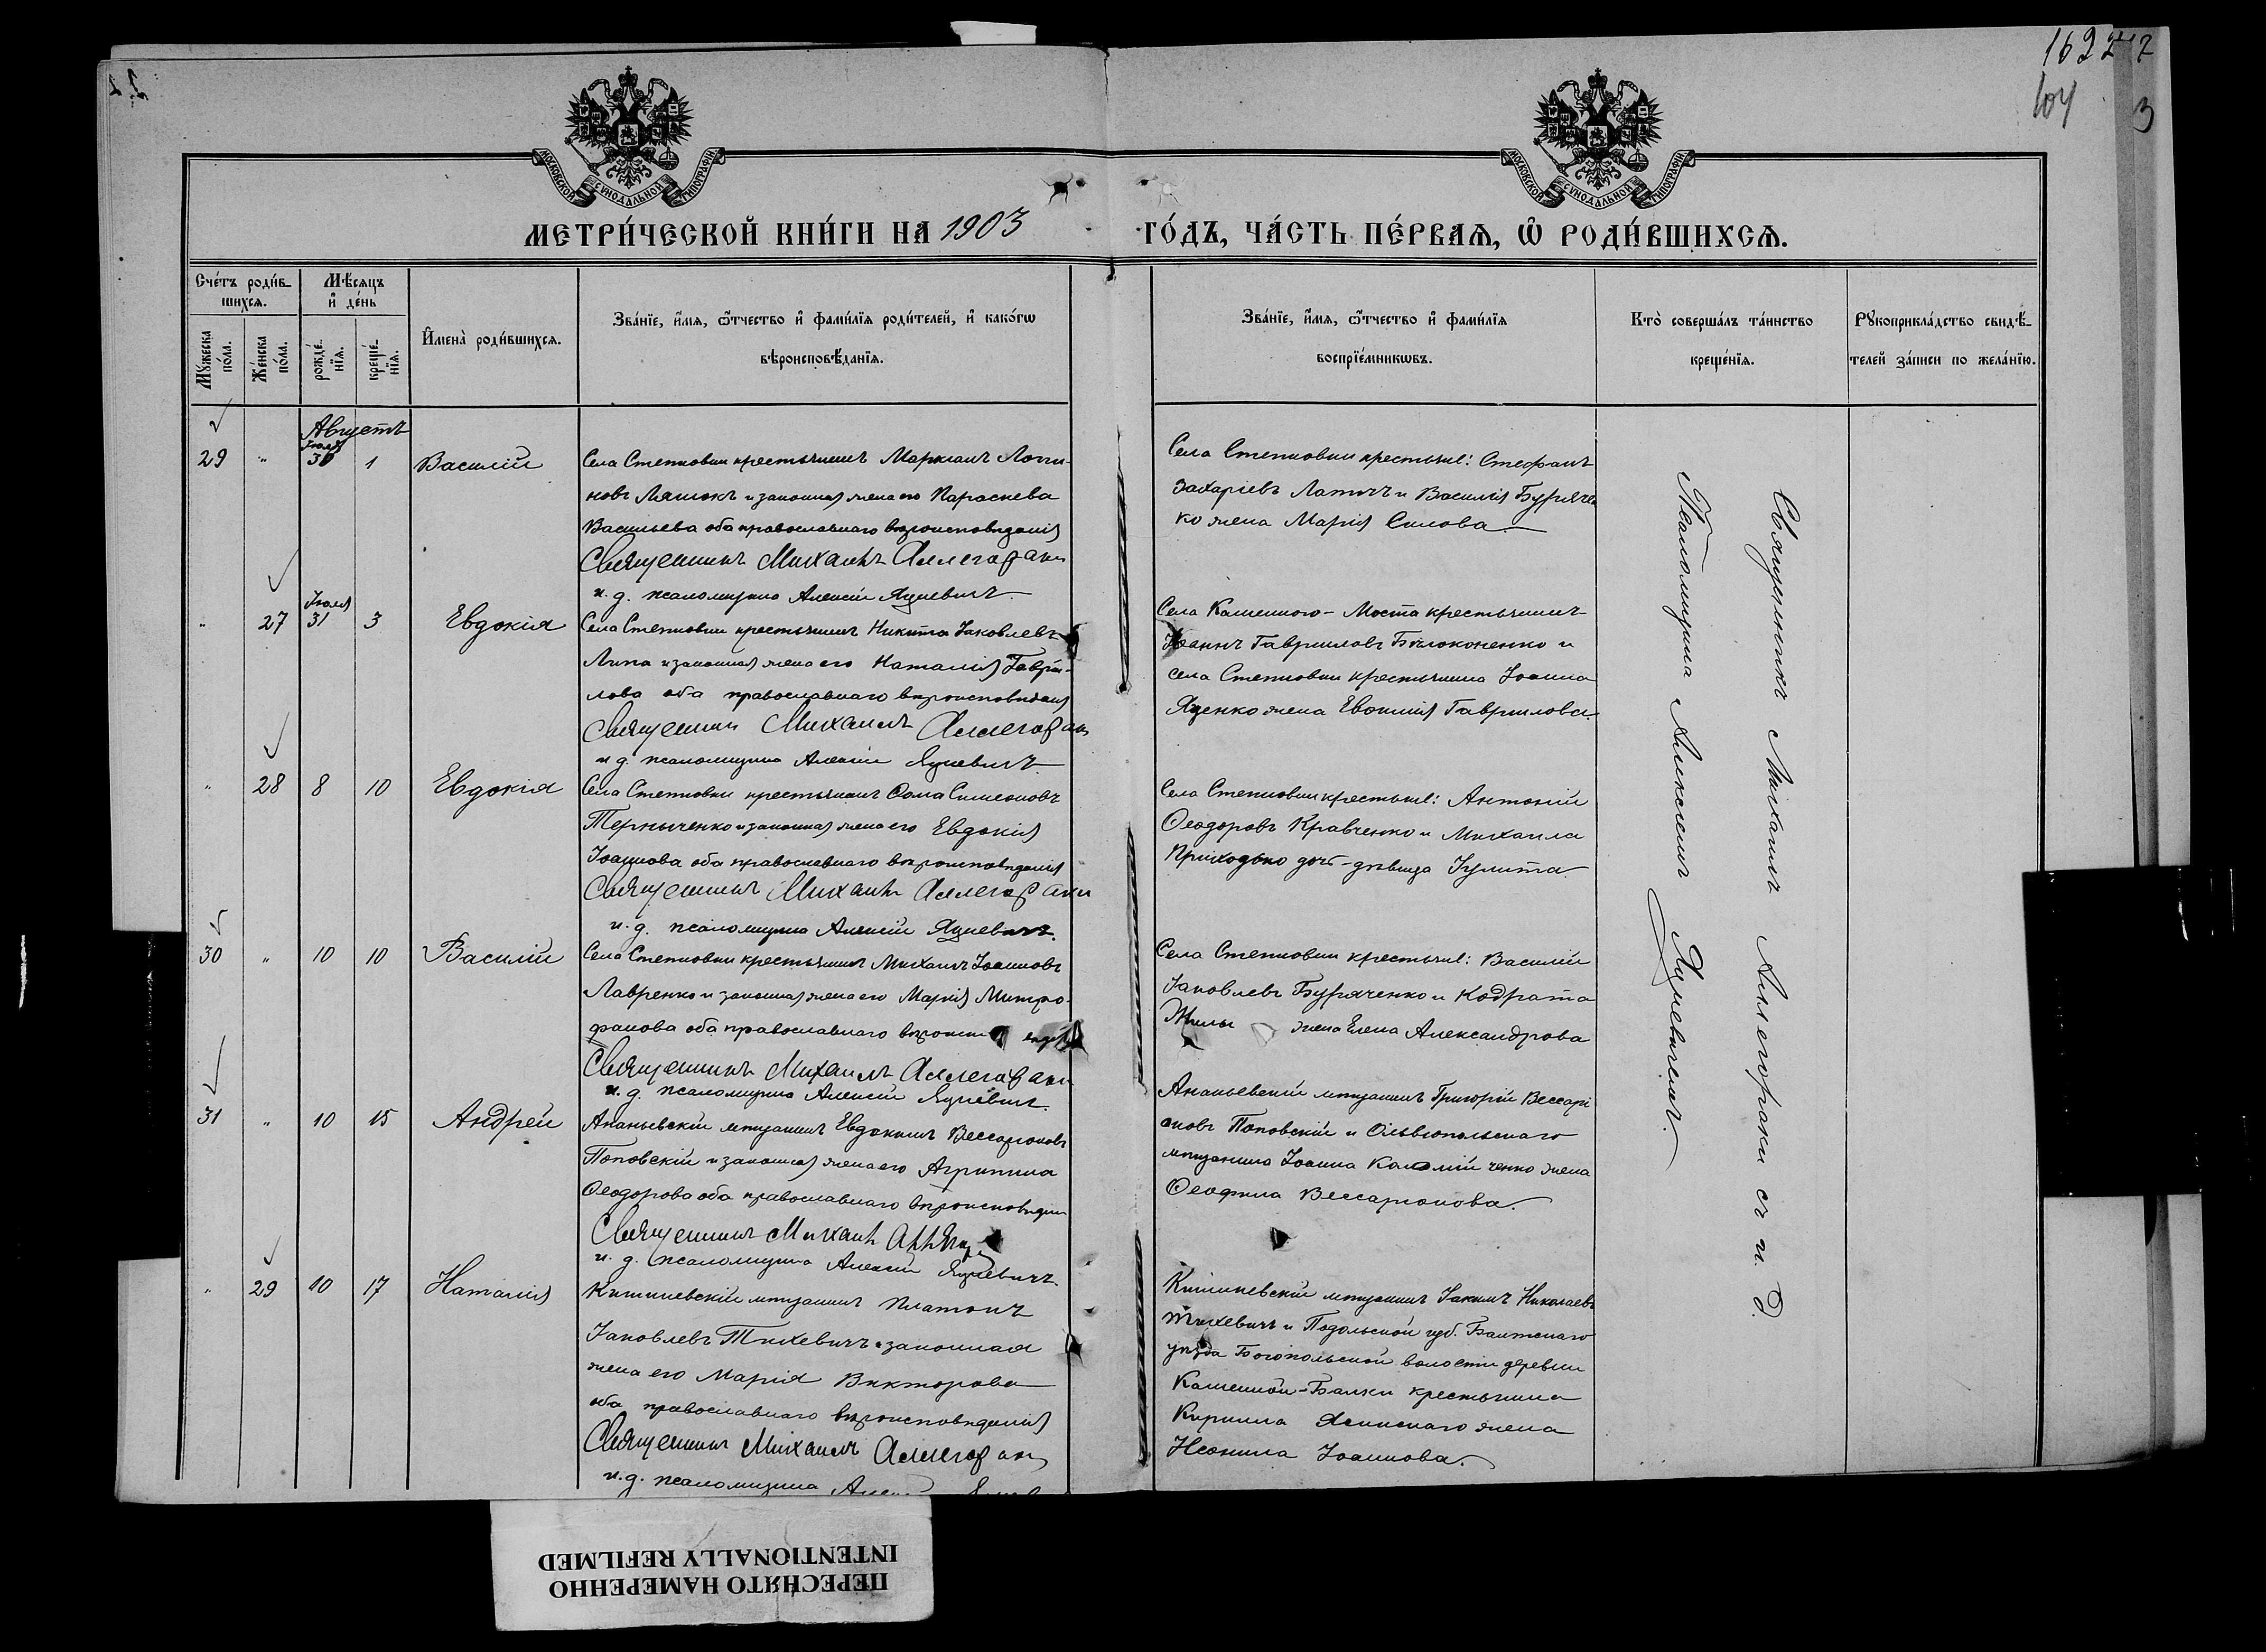 162
МОСКОВСКОЙ СѴНОДАЛЬНОЙ ТИПОГРАФІИ
МОСКОВСКОЙ СѴНОДАЛЬНОЙ ТИПОГРАФІИ
МЕТРИ́ЧЕСКОЙ КНИ́ГИ НА 1903 ГО́ДЪ, ЧА́СТЬ ПЕ́РВАЯ, Ѽ РОДИ́ВШИХСЯ.
Сче́тъ роди́в-
шихся.
Мѣ́сяцъ
и҆ де́нь
Мꙋ́жеска
по́ла.
Же́нска
по́ла.
рожде́-
нїя.
креще́-
нїя.
И҆мена̀ роди́вшихся.
Зва́нїе, и҆́мя, ѻ҆́тчество и҆ фами́лїя роди́телей, и҆ како́гѡ
вѣроисповѣ́данїя.
Зва́нїе, и҆́мя, ѻ҆́тчество и҆ фами́лїя
воспрїе́мникѡвъ.
Кто̀ соверша́лъ та́инство
креще́нїя.
Рꙋкоприкла́дство свидѣ́-
телей за́писи по жела́нїю.
Августъ
Іюля
29 " 30 1 Василій
Села Степковки крестьянинъ Маркіанъ Логи-
новъ Ляшокъ и законная жена его Параскева
Васильева оба православнаго вѣроисповѣданія
Священникъ Михаилъ Аллегораки
и. д. псаломщика Алексій Яцкевичъ
Села Степковки крестьяне: Стефанъ
Захаріевъ и Василія Бурячен
ко жена Марія Силова
Іюля
" 27 31 3 Евдокія
Села Степковки крестьянинъ Никита Іаковлевъ
Липа и законная жена его Наталія Гаврі-
лова оба православнаго вѣроисповѣданія
Священникъ Михаилъ Аллегораки
и д. псаломщика Алексій Яцкевичъ
Села Каменного-Моста крестьянинъ
Іоаннъ Гавриловъ Бѣлоконенко и
села Степковки крестьянина Іоанна
Яценко жена Евфимія Гаврилова
" 28 8 10 Евдокія
Села Степковки крестьянинъ Ѳома Симеоновъ
Терныченко и законная жена его Евдокія
Іоаннова оба православнаго вѣроисповѣданія
Священникъ Михаилъ Аллегораки
и. д. псаломщика Алексій Яцкевичъ
Села Степковки крестьяне: Антоній
Ѳеодоровъ Кравченко и Михаила
Приходько дочь-дѣвица Іулита
30 " 10 10 Василій
Села Степковки крестьянинъ Михаилъ Іоанновъ
Лавренко и законная жена его Марія Митро-
фанова оба православнаго
Священникъ Михаилъ Аллегораки
и. д. псаломщика Алексій Яцкевичъ
Села Степковки крестьяне: Василій
Іаковлевъ Буряченко и Кодрата
жена Елена Александрова
31 " 10 15 Андрей
Ананьевскій мѣщанинъ Евдокимъ Вессаріоновъ
Поповскій и законная жена его Агрипина
Ѳеодорова оба православнаго вѣроисповѣданія
Священникъ Михаилъ
и. д. псаломщика Алексій Яцкевичъ
Ананьевскій мѣщанинъ Григорій Вессарі
оновъ Поповскій и Ольвіопольскаго
мѣщанина Іоанна Коломійченко жена
Ѳеофила Вессаріонова.
" 29 10 17 Наталія
Кишиневскій мѣщанинъ Платонъ
Іаковлевъ Тихевичъ и законная
жена его Марія Викторова
оба православнаго вѣроисповѣданія
Священникъ Михаилъ Аллегораки
и. д. псаломщика
Кишиневскій мѣщанинъ Іакимъ Николаевъ
Тихевичъ и Подольской губ. Балтскаго
уѣзда Богопольской волости деревни
Каменной-Балки крестьянина
Кирилла Ясинскаго жена
Неонила Іоаннова.
Священникъ Михаилъ Аллегораки съ и. д.
Псаломщика Алексѣемъ Яцкевичемъ.
ПЕРЕСНЯТО НАМЕРЕННО
INTENTIONALLY REFILMED